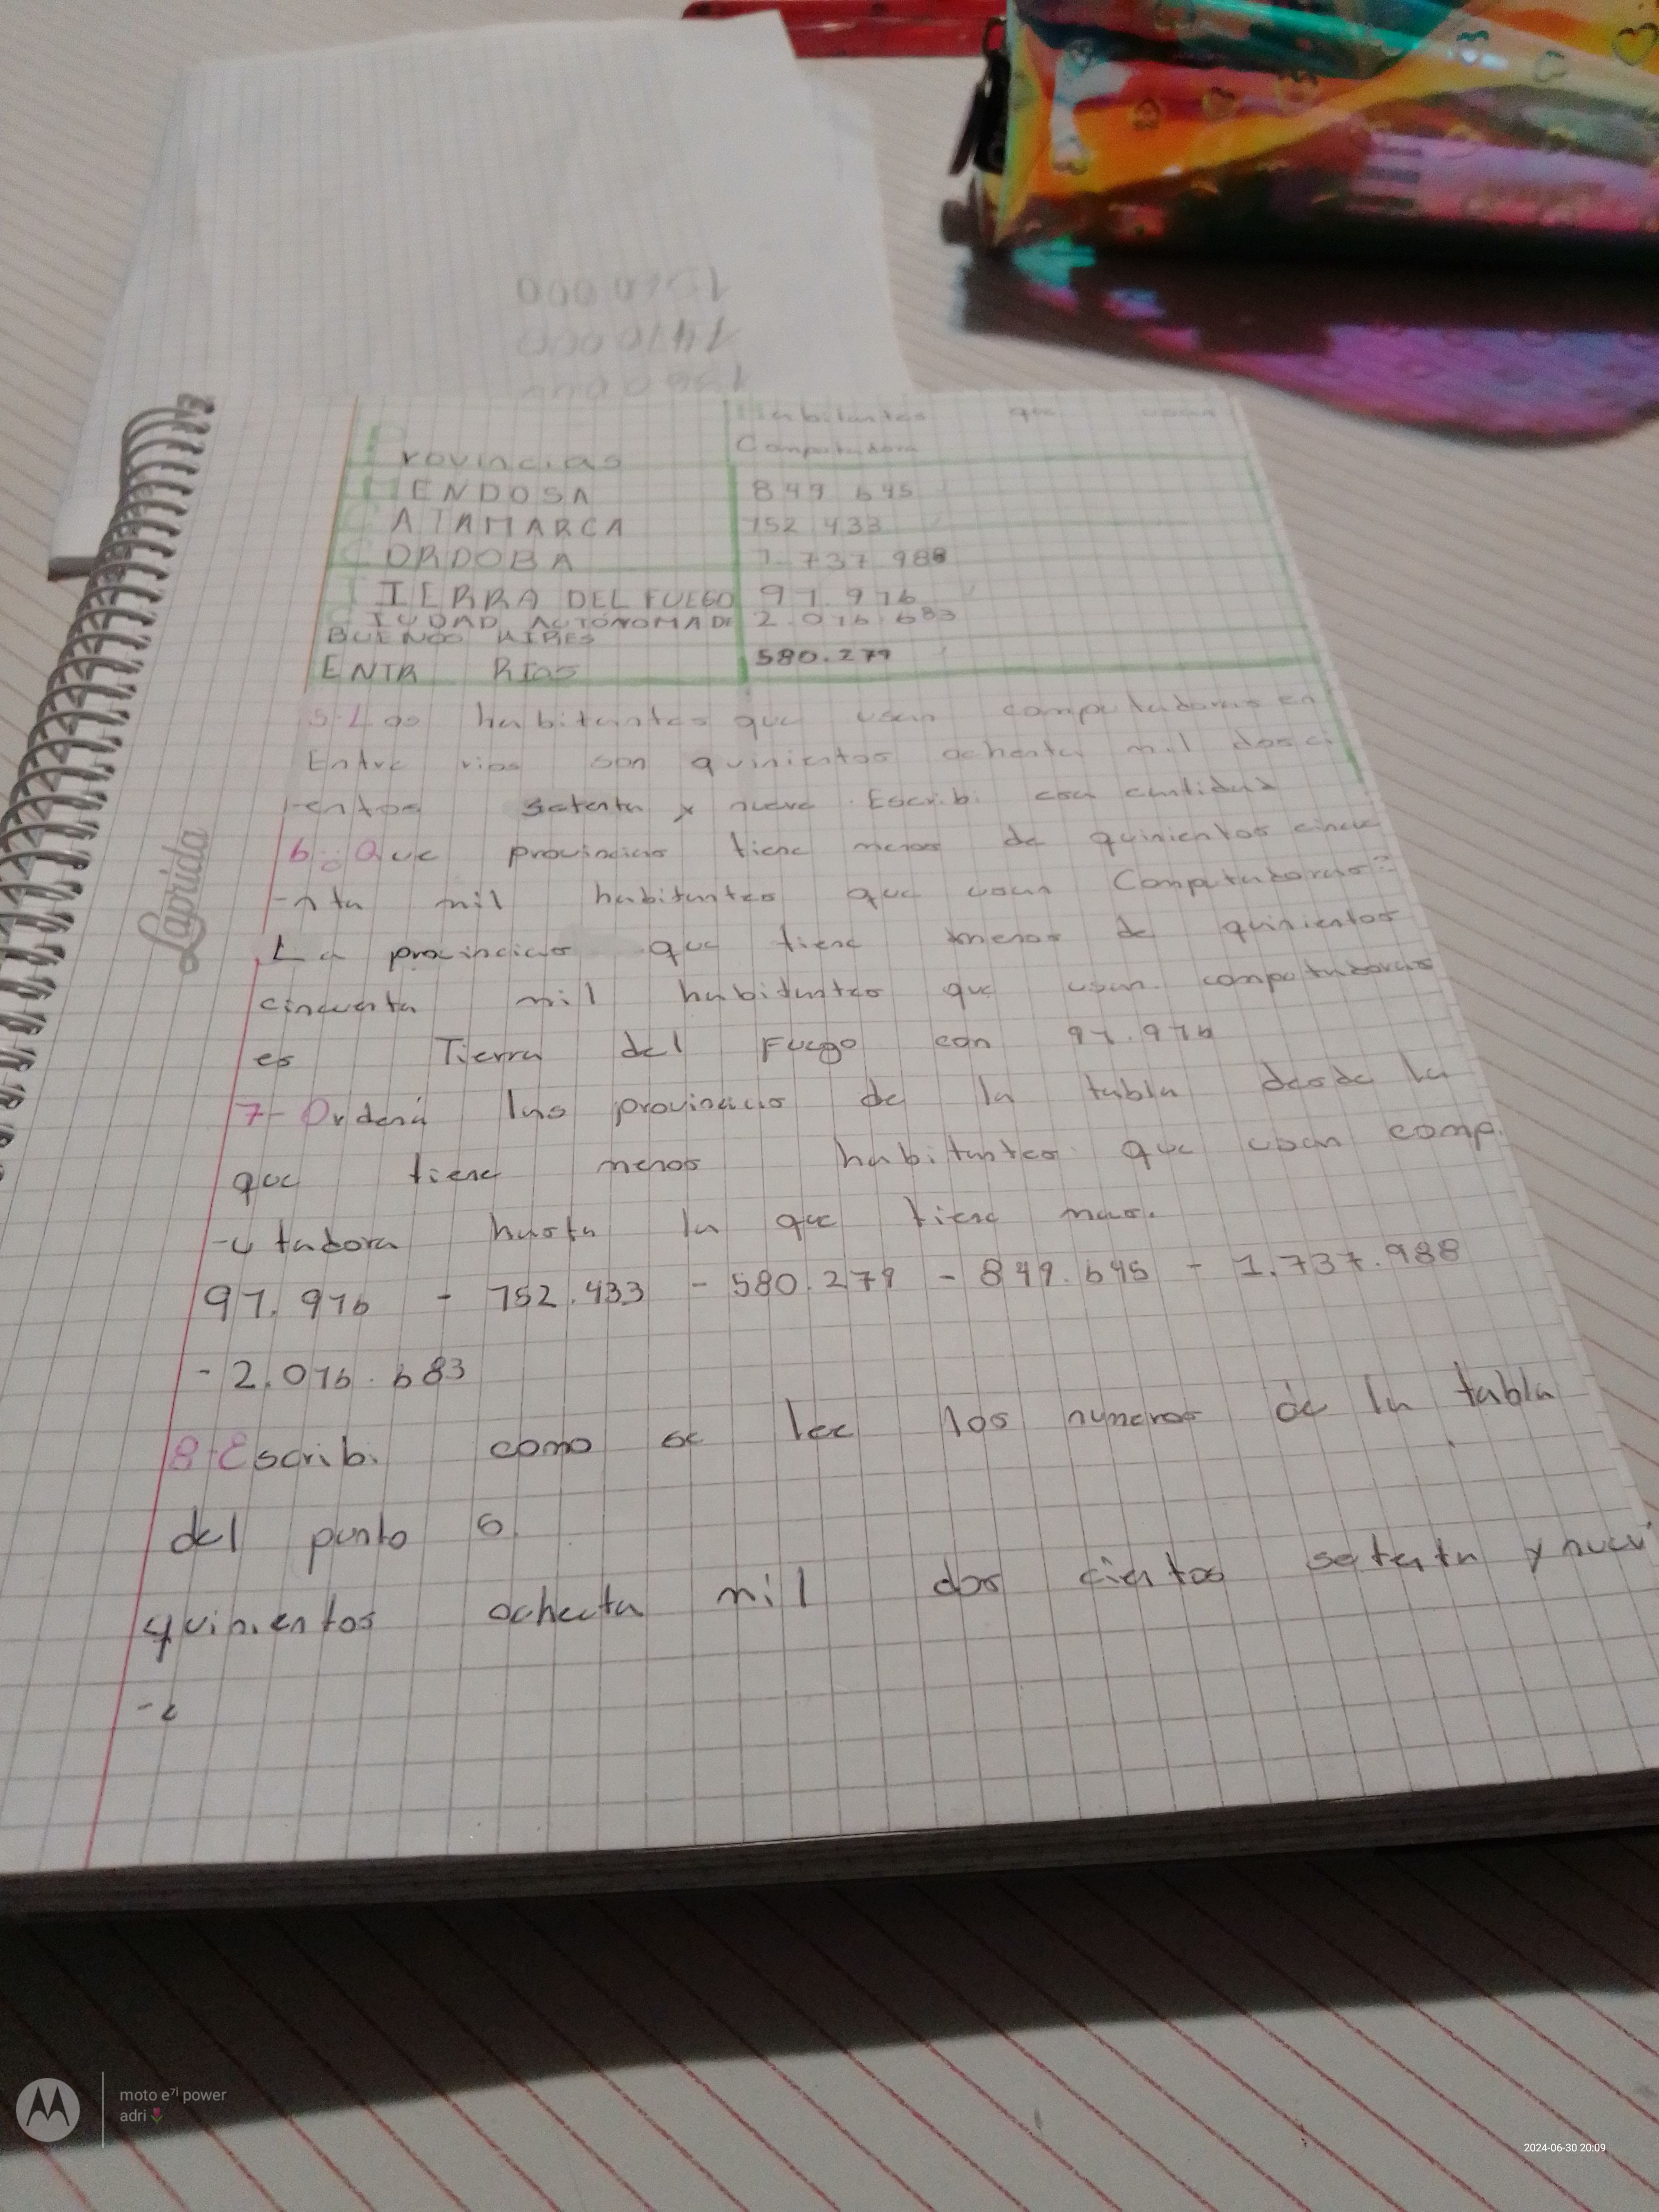 Habitantes que usan
Provincias Computadora
MENDOSA 849 645
CATAMARCA 152 433
CORDOBA 1.737.988
TIERRA DEL FUEGO 91.976
CIUDAD AUTÓNOMA DE 2.016.683
BUENOS AIRES
ENTR RIOS 580.279
5-Los habitantes que usan computadoras en
Entre rios son quinientos ochenta mil dosci
-entos setenta y nueve. Escribi esa cantidad
6-¿Que provincias tiene menos de quinientos cincue
-nta mil habitantes que usan Computadoras?
La provincias que tiene menos de quinientos
cincuenta mil habitantes que usan computadoras
es Tierra del Fuego con 91.976
7-Ordená las provincias de la tabla desde la
que tiene menos habitantes que usan comp.
-utadora hasta la que tiene mas.
91.976 - 152.433 - 580.279 - 849.645 - 1.737.988
- 2.016.683
8-Escribi como se lee los numeros de la tabla
del punto 6
quinientos ochecta mil dos cientos setenta y nuev
-e
Laprida
moto e⁷ⁱ power
adri🌷
2024-06-30 20:09